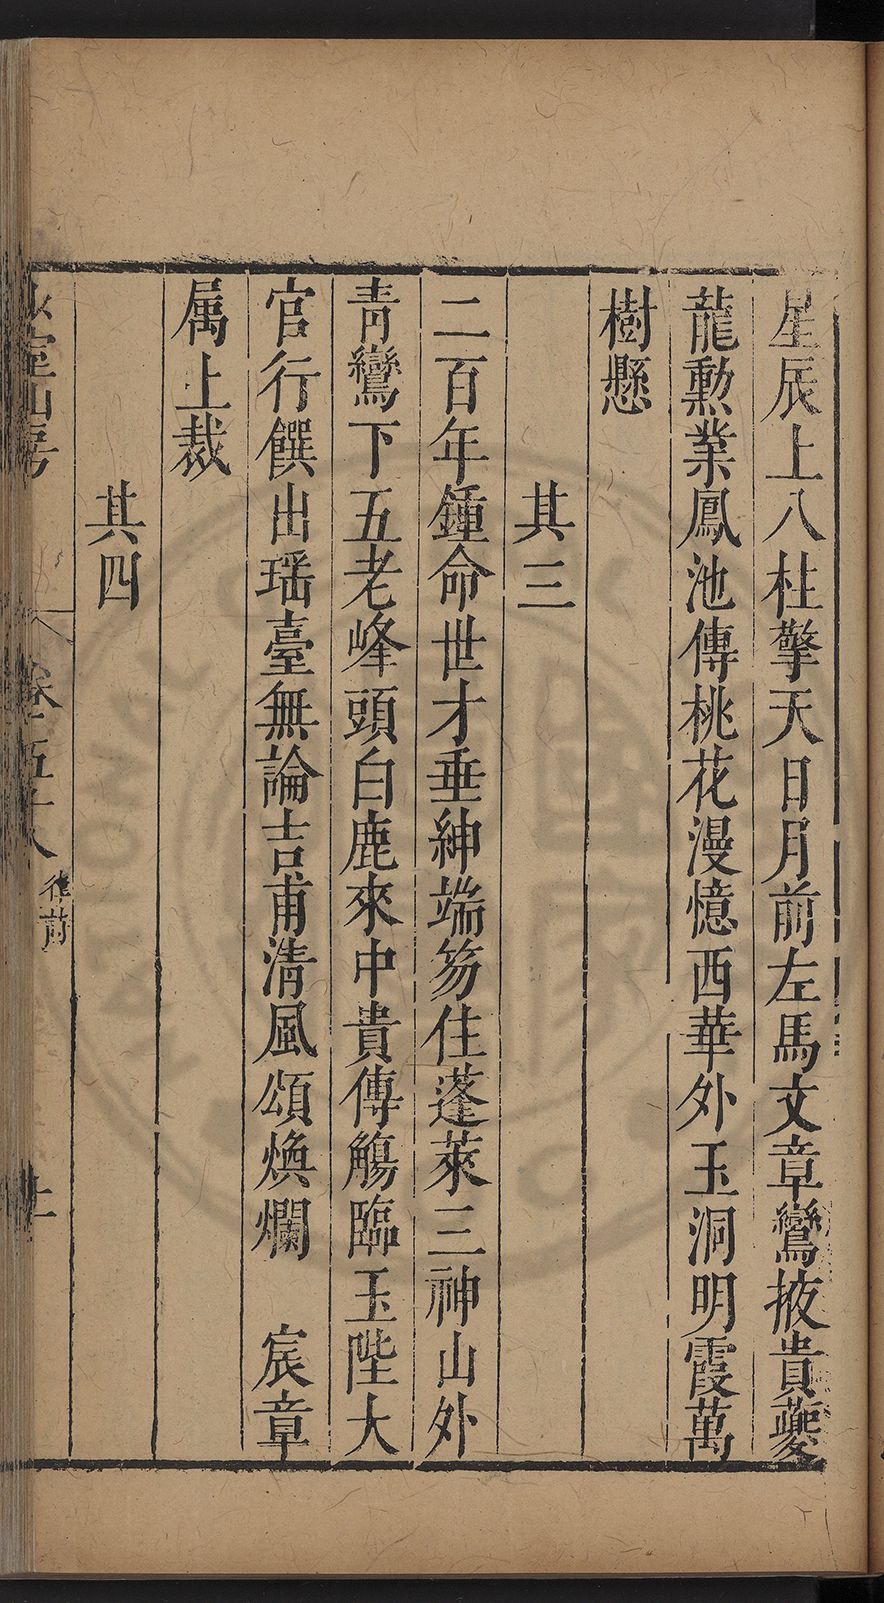 星辰上八柱擎天日月前左馬文章鸞掖貴夔
龍勲業鳳池傳桃花漫憶西華外玉洞明霞萬
樹懸
其三
二百年鍾命世才垂紳端笏住蓬萊三神山外
青鸞下五老峰頭白鹿來中貴傳觴臨玉陛大
官行饌出瑶臺無論吉甫清風頌煥爛　宸章
属上裁
其四
山房
律前